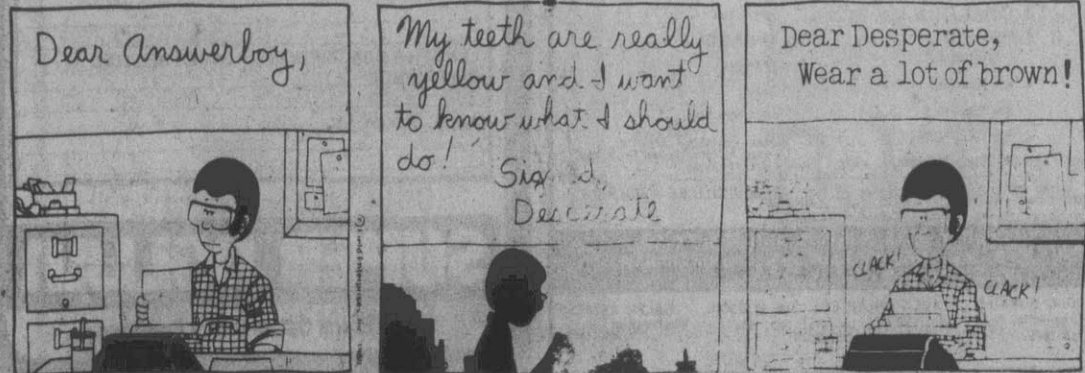 Dear Answerboy,
My teeth are really
yellow and I want
to know what I should
do!
Desperate
Dear Desperate,
Wear a lot of brown!
CLACK!
CLACK!